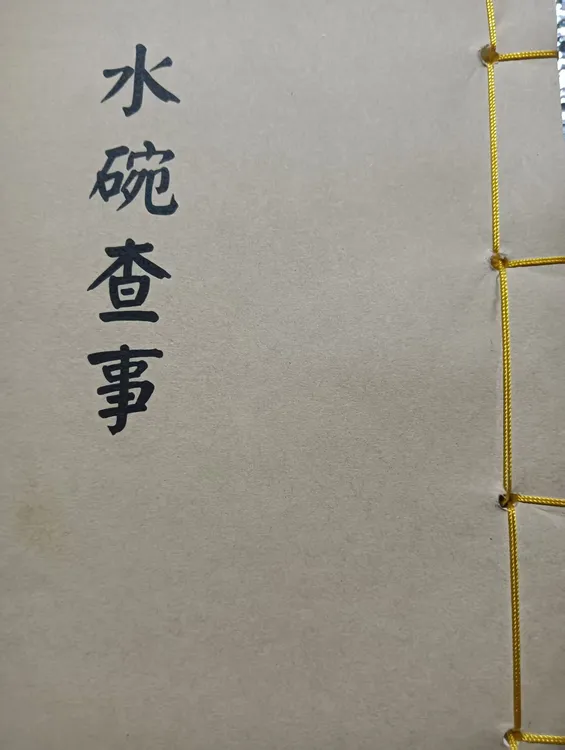 水碗查事